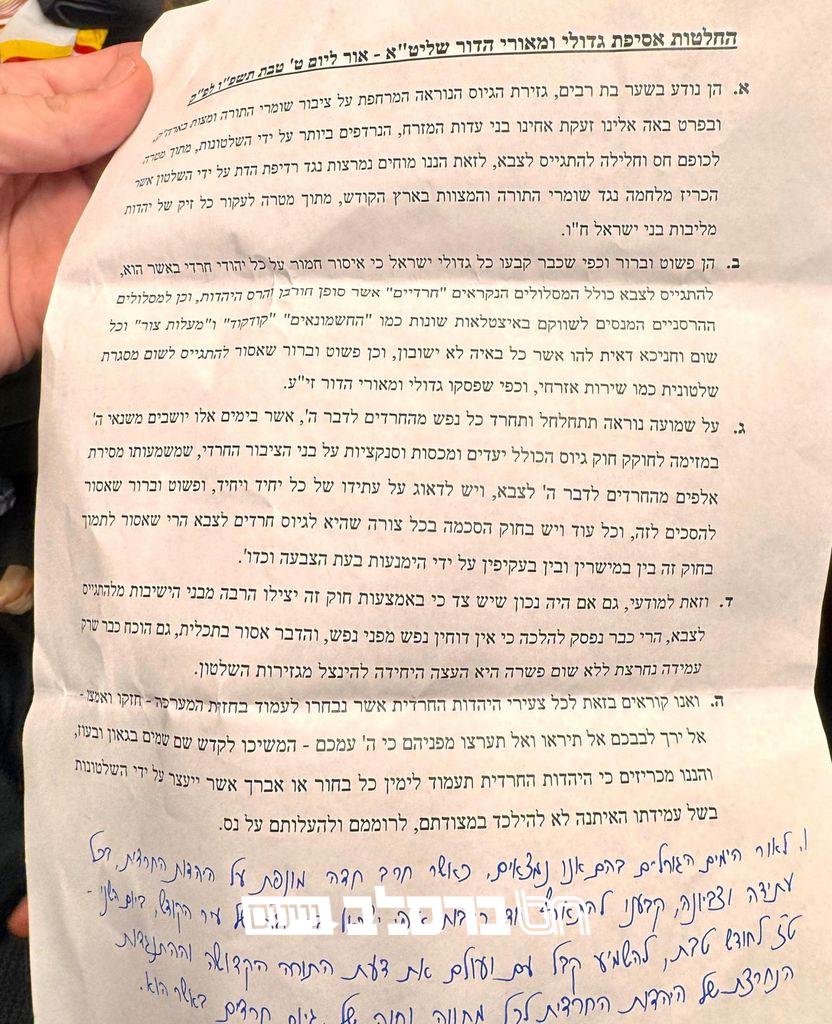 החלטות אסיפת גדולי ומאורי הדור שליט"א - אור ליום ט' טבת תשפ"ו לפ"ק
א. הן נודע בשער בת רבים, גזירת הגיוס הנוראה המרחפת על ציבור שומרי התורה ומצות בארה"ק,
ובפרט באה אלינו זעקת אחינו בני עדות המזרח, הנרדפים ביותר על ידי השלטונות, מתוך מטרה
לכופם חס וחלילה להתגייס לצבא, לזאת הננו מוחים נמרצות נגד רדיפת הדת על ידי השלטון אשר
הכריז מלחמה נגד שומרי התורה והמצוות בארץ הקודש, מתוך מטרה לעקור כל זיק של יהדות
מליבות בני ישראל ח"ו.
ב. הן פשוט וברור וכפי שכבר קבעו כל גדולי ישראל כי איסור חמור על כל יהודי חרדי באשר הוא,
להתגייס לצבא כולל המסלולים הנקראים "חרדיים" אשר סופן חורבן והרס היהדות, וכן למסלולים
ההרסניים המנסים לשווקם באיצטלאות שונות כמו "החשמונאים" "קודקוד" ו"מעלות צור" וכל
שום וחניכא דאית להו אשר כל באיה לא ישובון, וכן פשוט וברור שאסור להתגייס לשום מסגרת
שלטונית כמו שירות אזרחי, וכפי שפסקו גדולי ומאורי הדור זי"ע.
ג. על שמועה נוראה תתחלחל ותחרד כל נפש מהחרדים לדבר ה', אשר בימים אלו יושבים משנאי ה'
במזימה לחוקק חוק גיוס הכולל יעדים ומכסות וסנקציות על בני הציבור החרדי, שמשמעותו מסירת
אלפים מהחרדים לדבר ה' לצבא, ויש לדאוג על עתידו של כל יחיד ויחיד, ופשוט וברור שאסור
להסכים לזה, וכל עוד ויש בחוק הסכמה בכל צורה שהיא לגיוס חרדים לצבא הרי שאסור לתמוך
בחוק זה בין במישרין ובין בעקיפין על ידי הימנעות בעת הצבעה וכדו'.
ד. וזאת למודעי, גם אם היה נכון שיש צד כי באמצעות חוק זה יצילו הרבה מבני הישיבות מלהתגייס
לצבא, הרי כבר נפסק להלכה כי אין דוחין נפש מפני נפש, והדבר אסור בתכלית, גם הוכח כבר שרק
עמידה נחרצת ללא שום פשרה היא העצה היחידה להינצל מגזירות השלטון.
ה. ואנו קוראים בזאת לכל צעירי היהדות החרדית אשר נבחרו לעמוד בחזית המערכה - חזקו ואמצו -
אל ירך לבבכם אל תיראו ואל תערצו מפניהם כי ה' עמכם - המשיכו לקדש שם שמים בגאון ובעוז,
והננו מכריזים כי היהדות החרדית תעמוד לימין כל בחור או אברך אשר ייעצר על ידי השלטונות
בשל עמידתו האיתנה לא להילכד במצודתם, לרוממם ולהעלותם על נס.
ו, לאור הימים הגורליים בהם אנו נמצאים, כאשר חרב חדה מונפת על היהדות החרדית, בכל
עתידה וצביונה, קבענו של עיר הקודש, ביום השני -
ט"ז לחודש טבת, להשמיע קבל עם ועולם את דעת התורה הקדושה וההתנגדות
הנחרצת של היהדות החרדית לכל מתווה וחוק של גיוס חרדים באשר הוא.
ברסלב